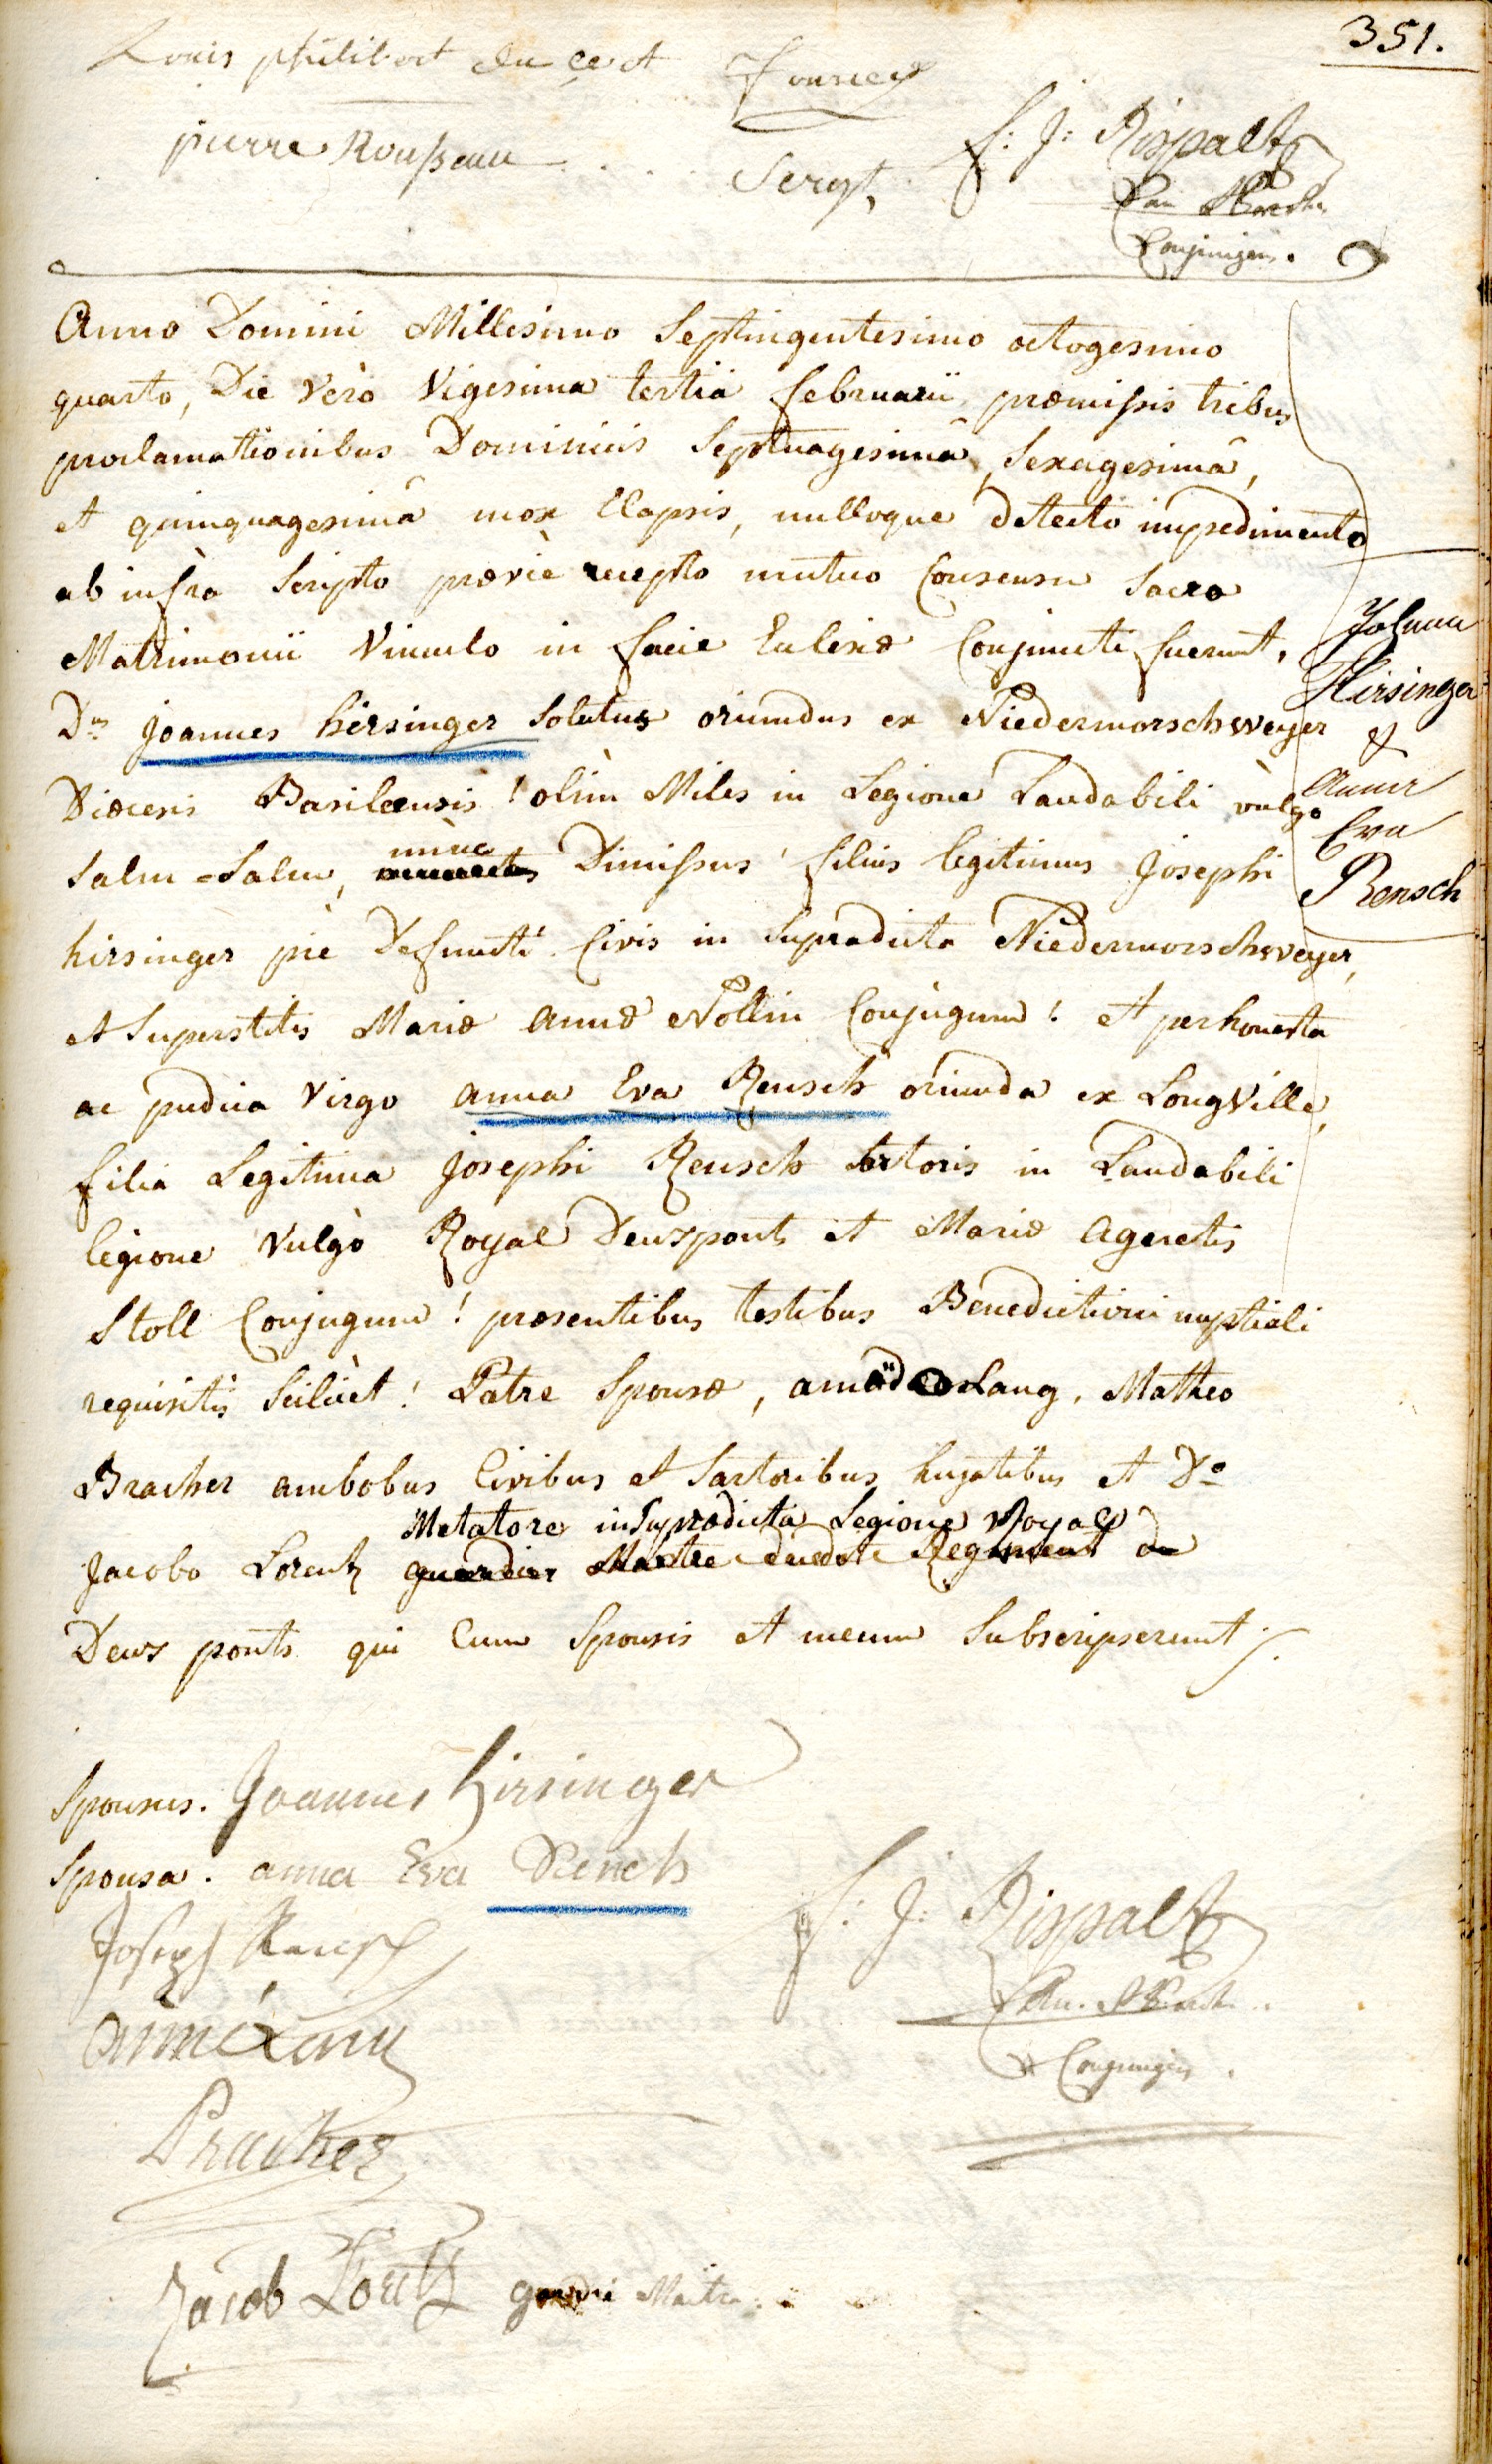 351.
Louis philibert
pierre Rousseau
Sergt,
f: J: Rispalt
Conjungens.
Anno Domini Millesimo Septingentesimo octogesimo
quarto, Die Verò Vigesima tertia februarii præmissis tribus
proclamationibus Dominicis Septuagesimâ, Sexagesimâ,
et quinquagesimâ mox Elapsis, nulloque detecto impedimento
ab infra Scripto prævie recepto mutuo Consensu Sacro
Matrimonii Vinculo in facie Eclesiæ Conjuncti fuerunt,
Dns joannes hirsinger Solutus oriundus ex Niedermorschweyer
Diœcesis Basileensis! olim Miles in Legione Laudabili vulgo
Salm=Salm, nunc Dimissus filius legitimus Josephi
hirsinger piè Defuncti Civis in supradicta Niedermorschweyer,
et Superstitis Mariæ annæ Nollin Conjugum! et perhonesta
ac pudica Virgo anna Eva Reusch oriunda ex LongVille,
filia Legitima josephi Reusch Sartoris in Laudabili
legione Vulgò Royal Deuxponts et Mariæ Agenetis
Stoll Conjugum! præsentibus testibus Benedictioni nuptiali
requisitis Scilicet! Patre Sponsæ, amädeo Lang, Matheo
Bracher ambobus Civibus et Sartoribus hujatibus et Do
Metatore in Suprædicta Legione Royal
Jacobo Lorentz
Deux ponts qui Cum Sponsis et mecum Subscripserunt
Johann
Hirsinger
&
Anna
Eva
Rensch
Sponsus. Joannes hirsinger
Sponsa. anna Eva Reuch
Joseph Reusch
aimé Lang
Bracher
Jacob Lorentz
f: J: Rispalt
Conjungens.